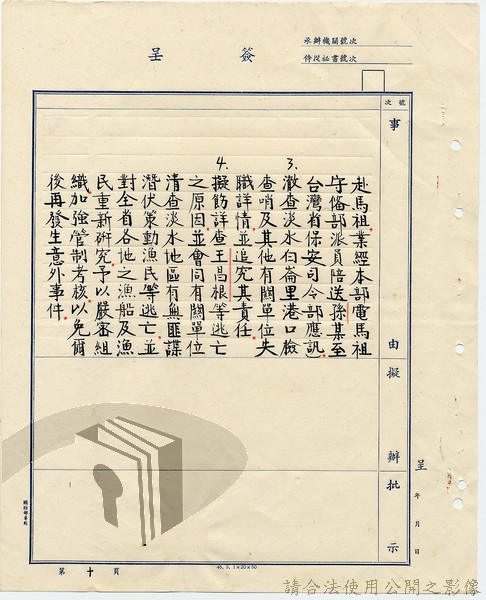 簽呈
承辦機關號次
侍從祕書號次
號次
事由
擬辦
批示
赴馬祖業經本部電馬祖
守備部派員陪送孫某至
台灣省保安司令部應訊。
3.澈查淡水伯崙里港口檢
查哨及其他有關單位失
職詳情並追究其責任
4.擬飭詳查王昌根等逃亡
之原因並會同有關單位
清查淡水地區有無匪諜
潛伏策動漁民等逃亡並
對全省各地之漁船及漁
民重新研究予以嚴密組
織加強管制考核以免爾
後再發生意外事件。
呈
年月日
第十頁
45. 5. 1×20×50
請合法使用公開之影像